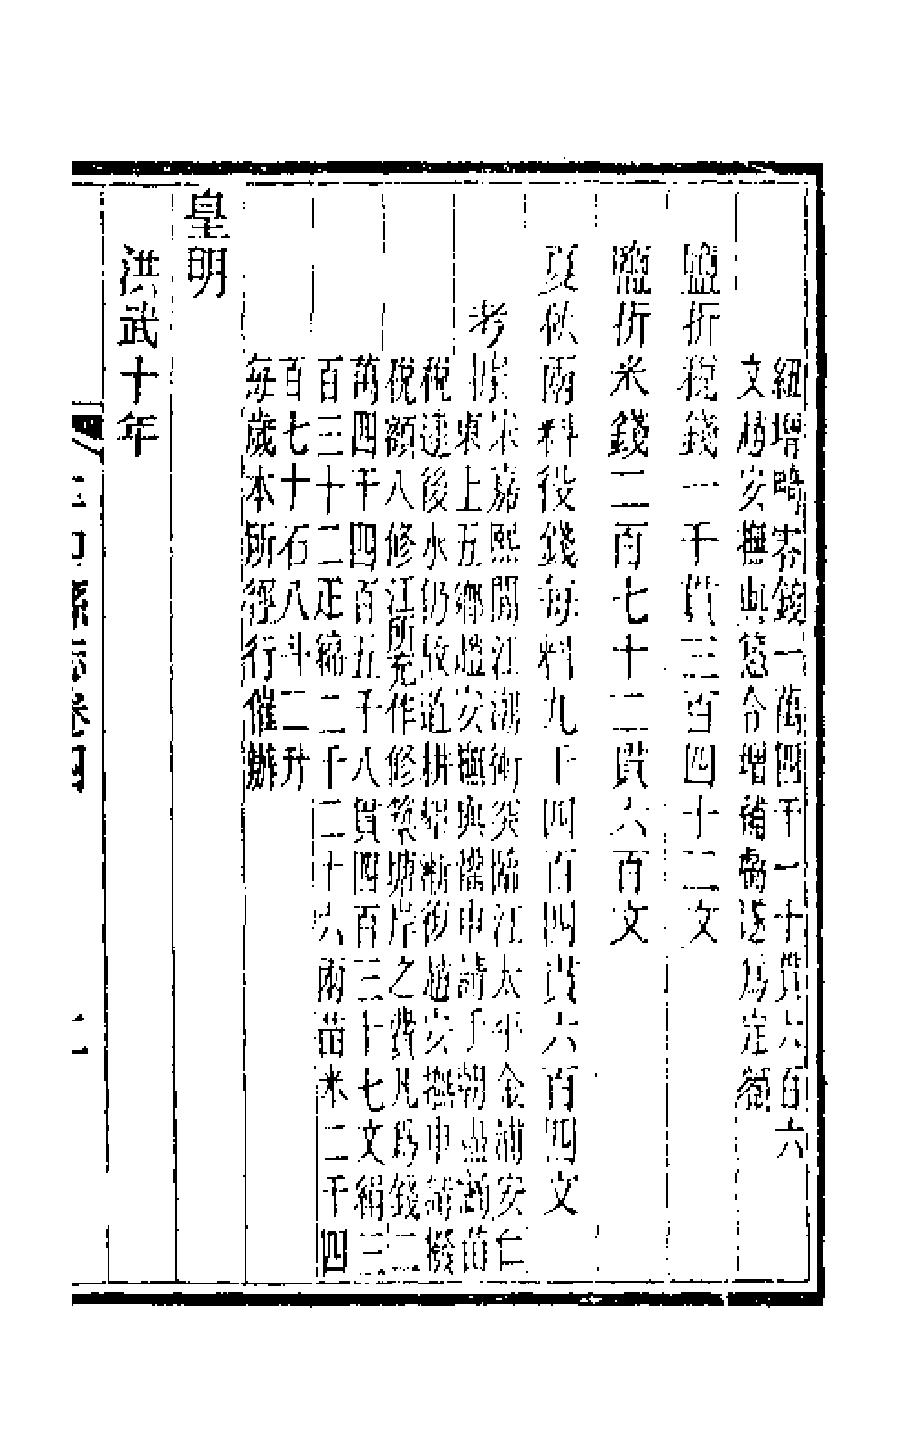 紐增略零錢一萬四千一十貫六百六
文趙安撫與愬令增補虧遂爲定額
鹽折稅錢一千貫三百四十二文
鹽折米錢二百七十二貫六百文
夏秋兩科役錢每科九千四百四貫六百四文
考
據宋嘉熙間江潮衝突臨江太平金浦安仁
東上五鄉趙安撫與懽申請于朝盡蠲苗
稅逮後水仍故道耕墾漸復趙安撫申請撥
稅額八修江所充作修築塘岸之費凡爲錢二
萬四千四百五十八貫四百三十七文絹三
百三十二疋綿二千二十六兩苗米二千四
百七十石八斗二升
每歲本所徑行催辦
皇明
洪武十年
縣志卷四